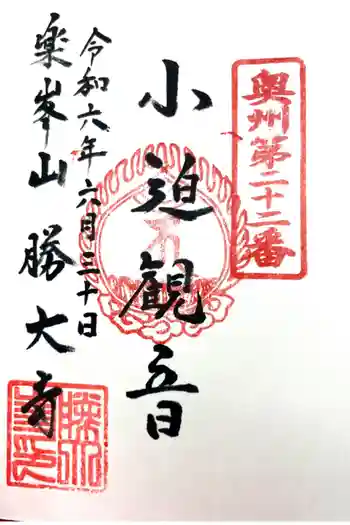 奥州第二十二番
小迫観音
令和六年六月三十日
楽峯山勝大寺